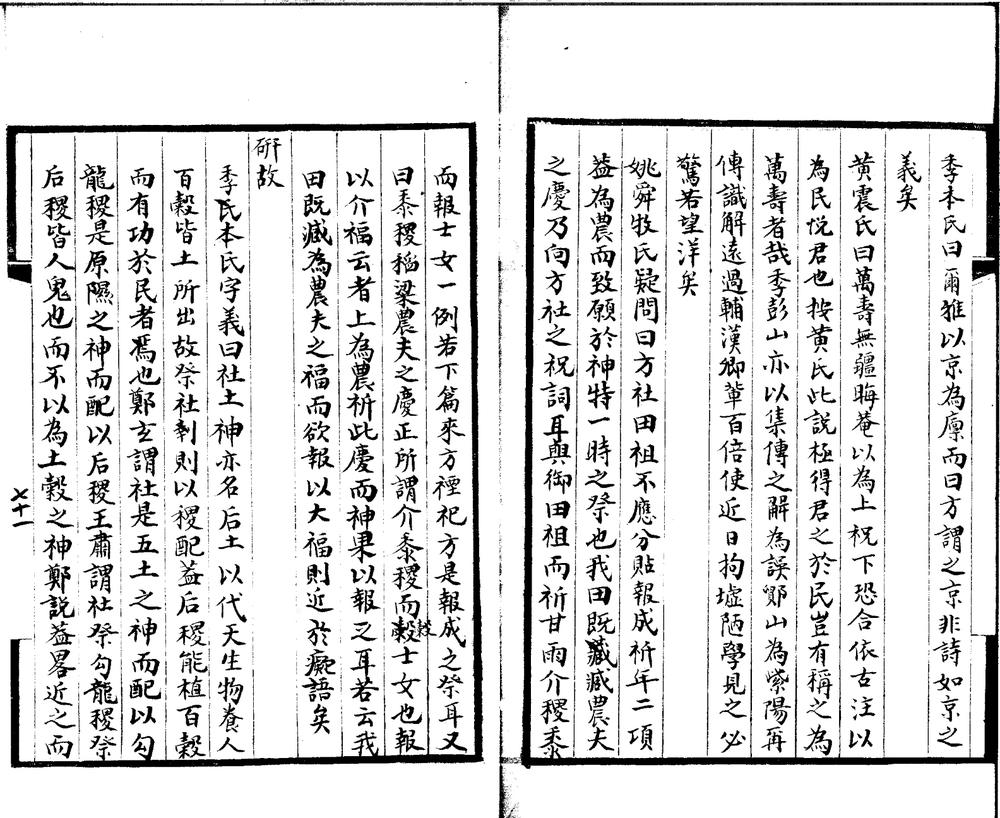 季本氏曰爾雅以京為廪而曰方謂之京非詩如京之
義矣
黄震氏曰萬壽無疆晦菴以為上祝下恐合依古注以
為民悦君也按黄氏此説極得君之於民豈有稱之為
萬壽者哉季彭山亦以集傳之解為誤鄮山為紫陽再
傳識解遠過輔漢卿輩百倍使近日拘墟陋學見之必
驚若望洋矣
姚舜牧氏疑問曰方社田祖不應分貼報成祈年二項
葢為農而致願於神特一時之祭也我田既臧臧農夫
之慶乃向方社之祝詞耳與御田祖而祈甘雨介稷黍
而報士女一例若下篇來方禋祀方是報成之祭耳又
曰黍稷稻粱農夫之慶正所謂介黍稷而穀士女也報
以介福云者上為農祈此慶而神果以報之耳若云我
田既臧為農夫之福而欲報以大福則近於癡語矣
研故
季氏本氏字義曰社土神亦名后土以代天生物養人
百穀皆土所出故祭社則以稷配葢后稷能植百穀
而有功於民者焉也鄭玄謂社是五土之神而配以勾
龍稷是原隰之神而配以后稷王肅謂社祭勾龍稷祭
后稷皆人鬼也而不以為土穀之神鄭説葢畧近之而